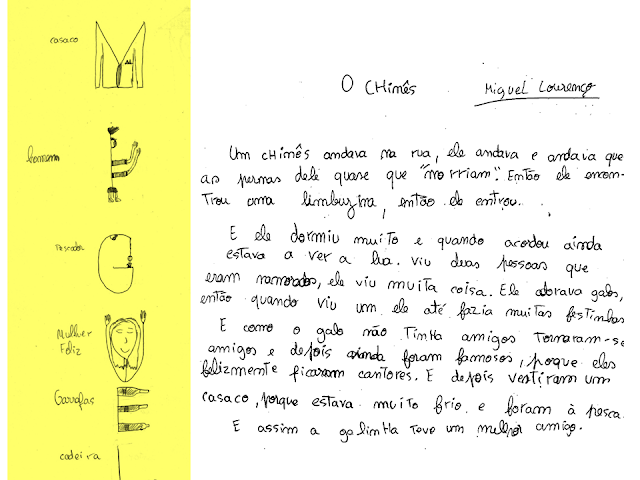 casaco
homem
Pescador
Mulher
Feliz
Garrafas
cadeira
O CHinês Miguel Lourenço
Um cHinês andava na rua, ele andava e andava que
as pernas dele quase que "morriam". Então ele encon-
Trou uma limbuzina, então ele entrou.
E ele dormiu muito e quando acordou ainda
estava a ver a lua. viu duas pessoas que
eram namorados, ele viu muita coisa. Ele adorava galos,
então quando viu um ele até fazia muitas festinhas
E como o galo não Tinha amigos Tornaram-se
amigos e depois ainda foram famosos, porque eles
felizmente ficaram cantores. E depois vestiram um
casaco, porque estava muito frio e foram à pesca.
E assim a galinHa Teve um melhor amigo.